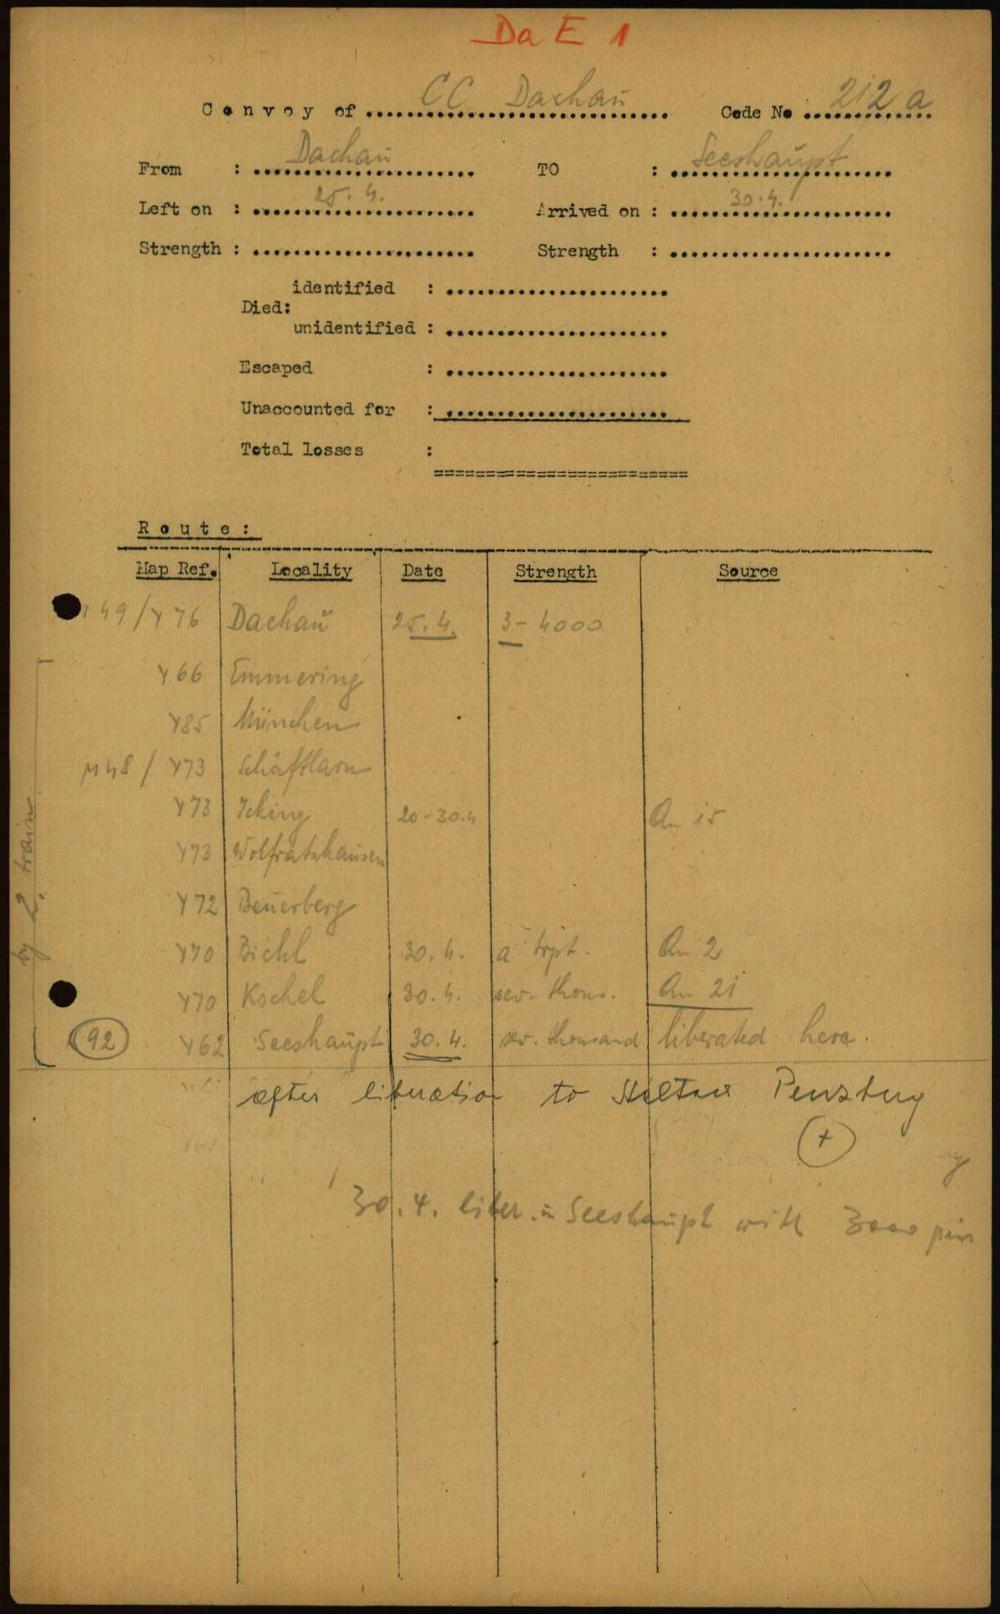 Da E 1
Convoy of CC Dachau Code No 212 a
From : Dachau TO : Seeshaupt
Left on : 25. 4. Arrived on : 30. 4.
Strength : Strength :
identified :
Died:
unidentified :
Escaped :
Unaccounted for :
Total losses :
Route:
Map Ref. Locality Date Strength Source
49/Y 76 Dachau 25. 4. 3 - 4000
Y66 Emmering
Y85 München
M48 / Y73 Schäftlarn
Y73 Icking 20-30.4 An 15
Y73 Wolfratshausen
Y72 Beuerberg
Y70 Bichl 30. 4. a trpt. An 2
Y70 Kochel 30. 4. sev. thous. An 21
92 Y62 Seeshaupt 30. 4. sev. thousand liberated here.
by 2. train
after liberation to Penzberg
+
30. 4. liber. in Seeshaupt with 3000